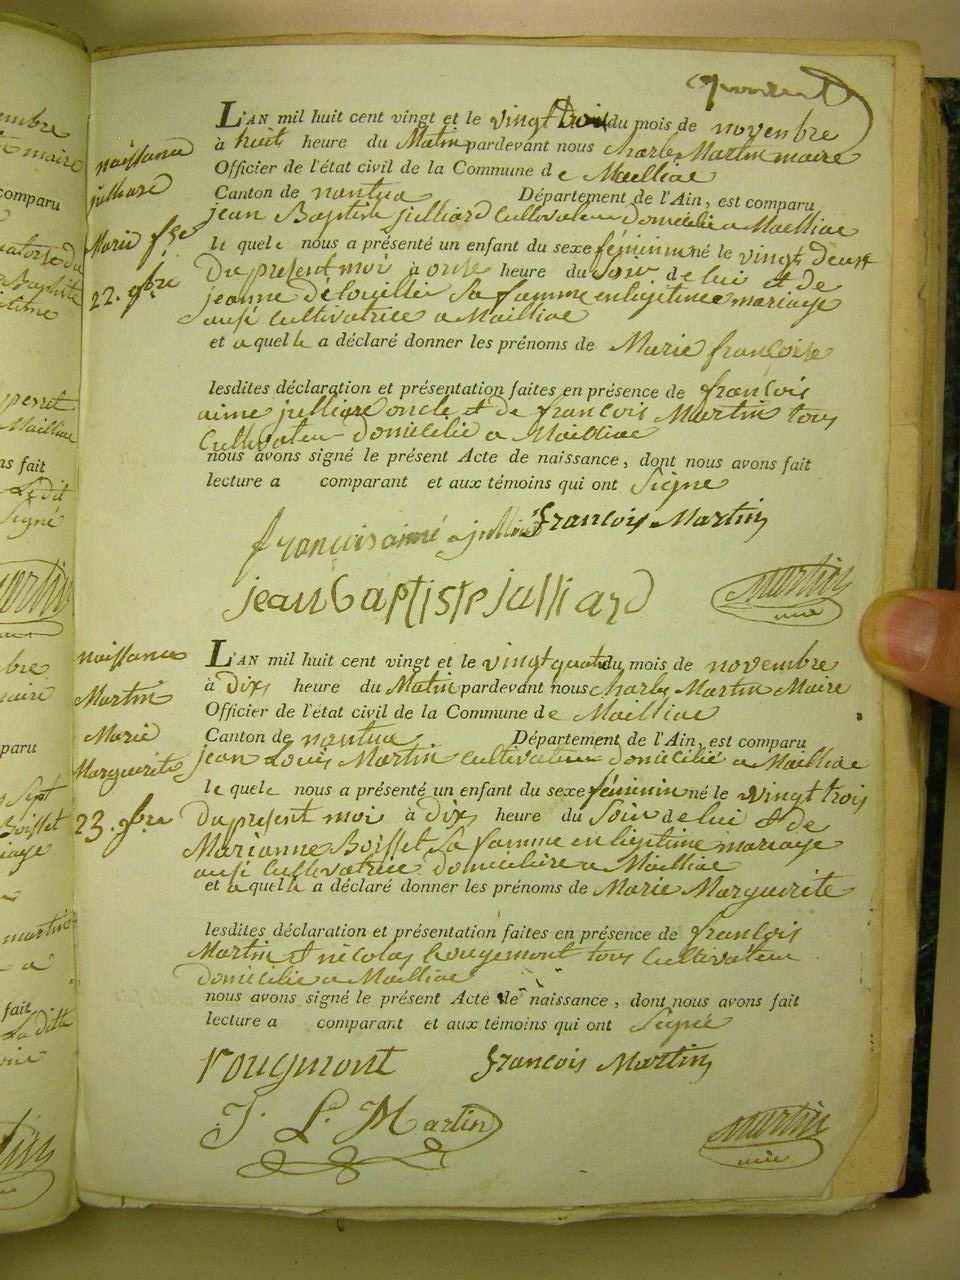 naissance
julliard
Marie fse
22. 9bre
L'AN mil huit cent vingt et le vingt trois du mois de novembre
à huit heure du Matin pardevant nous charles Martin maire
Officier de l'état civil de la Commune de Mailliac
Canton de nantua Département de l'Ain, est comparu
jean Baptiste julliard Cultivateur domicilié a Mailliac
le quel nous a présenté un enfant du sexe féminin né le vingt deux
Du present moi à onse heure du Soir de lui et de
jeanne la famme en legitime mariage
ausi Cultivatrice a Mailliac
et a quelle a déclaré donner les prénoms de Marie françoise
lesdites déclaration et présentation faites en présence de françois
aime julliard oncle et de françois Martin tous
Cultivateur domicilie a Mailliac
nous avons signé le présent Acte de naissance, dont nous avons fait
lecture a comparant et aux témoins qui ont Signe
françois aimé julliard françois Martin
jean baptiste julliard Martin
mre
naissance
Martin
Marie
Marguerite
23. 9bre
L'AN mil huit cent vingt et le vingt quatre du mois de novembre
à Dix heure du Matin pardevant nous charles Martin Maire
Officier de l'état civil de la Commune de Mailliac
Canton de nantua Département de l'Ain, est comparu
jean Louis Martin cultivateur domicilié a Mailliac
le quel nous a présenté un enfant du sexe féminin né le vingt trois
Du present moi à Dix heure du Soir de lui et de
Marianne Boisset la famme en legitime mariage
ausi Cultivatrice domiciliere a Mailliac
et a quelle a déclaré donner les prénoms de Marie Marguerite
lesdites déclaration et présentation faites en présence de françois
Martin et nicolas Rougemont tous Cultivateur
domicilie a Mailliac
nous avons signé le présent Acte de naissance, dont nous avons fait
lecture a comparant et aux témoins qui ont Signé
rougmont françois Martin
J. L. Martin Martin
mre